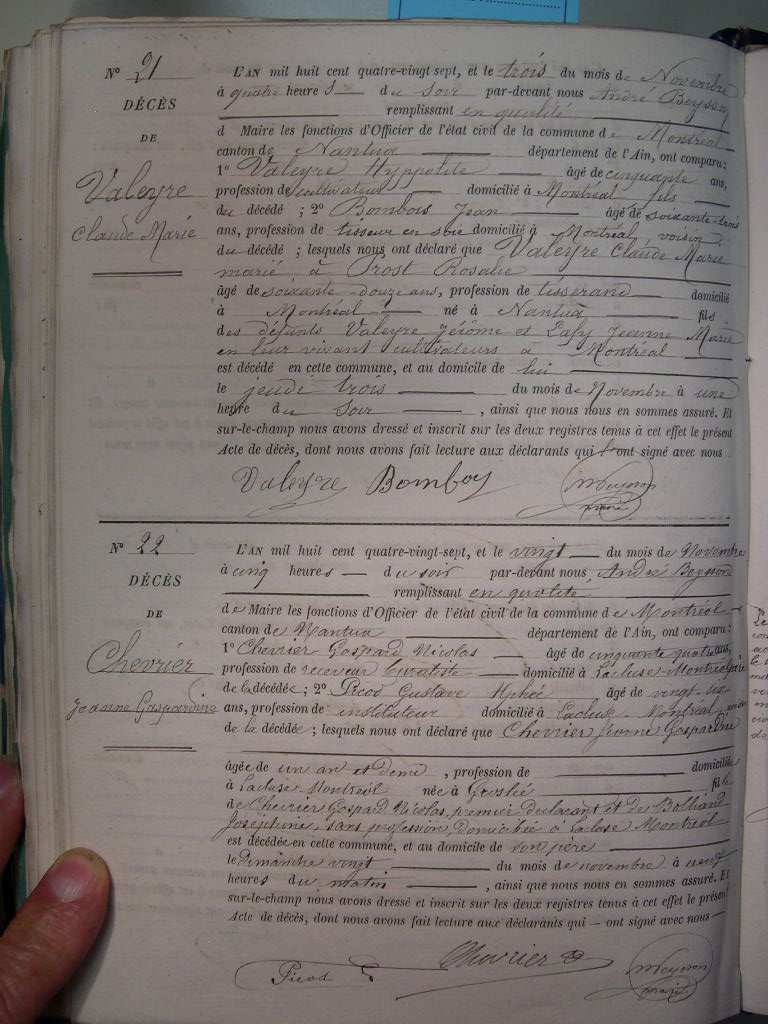 N° 21
DÉCÈS
DE
Valeyre
Claude Marie
L'AN mil huit cent quatre-vingt sept, et le trois du mois de Novembre
à quatre heures du soir par-devant nous André Beysson
remplissant en qualité
d Maire les fonctions d'Officier de l'état civil de la commune de Montréal
canton de Nantua département de l'Ain, ont comparu:
1° Valeyre Hyppolite âgé de cinquante ans,
profession de cultivateur domicilié à Montréal fils
du décédé ; 2° Bombois Jean âgé de soixante-trois
ans, profession de tisseur en soie domicilié à Montréal voisin
du décédé ; lesquels nous ont déclaré que Valeyre Claude Marie
marié à Prost Rosalie
âgé de soixante-douze ans, profession de tisserand domicilié
à Montréal né à Nantua fils
des défunts Valeyre Jérôme et Jeanne Marie
en leur vivant cultivateurs à Montréal
est décédé en cette commune, et au domicile de lui
le jeudi trois du mois de Novembre à une
heure du soir , ainsi que nous nous en sommes assuré. Et
sur-le-champ nous avons dressé et inscrit sur les deux registres tenus à cet effet le présent
Acte de décès, dont nous avons fait lecture aux déclarants qui l'ont signé avec nous
Valeyre Bomboy
maire
N° 22
DÉCÈS
DE
Chevrier
Jeanne Gaspardine
L'AN mil huit cent quatre-vingt-sept, et le vingt du mois de Novembre
à cinq heures du soir par-devant nous André Beysson
remplissant en qualité
de Maire les fonctions d'Officier de l'état civil de la commune de Montréal
canton de Nantua département de l'Ain, ont comparu:
1° Chevrier Gaspard Nicolas âgé de cinquante quatre ans,
profession de receveur buraliste domicilié à Lacluse-Montréal père
de la décédée ; 2° Picod Gustave Alphée âgé de vingt-six
ans, profession de instituteur domicilié à Lacluse-Montréal voisin
de la décédée ; lesquels nous ont déclaré que Chevrier Jeanne Gaspardine
âgée de un an et demi , profession de domiciliée
à Lacluse-Montréal née à Groslée fille
de Chevrier Gaspard Nicolas, premier déclarant et de
Joséphine, sans profession, domiciliée à Lacluse Montréal
est décédée en cette commune, et au domicile de son père
le dimanche vingt du mois de novembre à neuf
heures du matin , ainsi que nous nous en sommes assuré. Et
sur-le-champ nous avons dressé et inscrit sur les deux registres tenus à cet effet le présent
Acte de décès, dont nous avons fait lecture aux déclarants qui ont signé avec nous
Picod Chevrier
maire